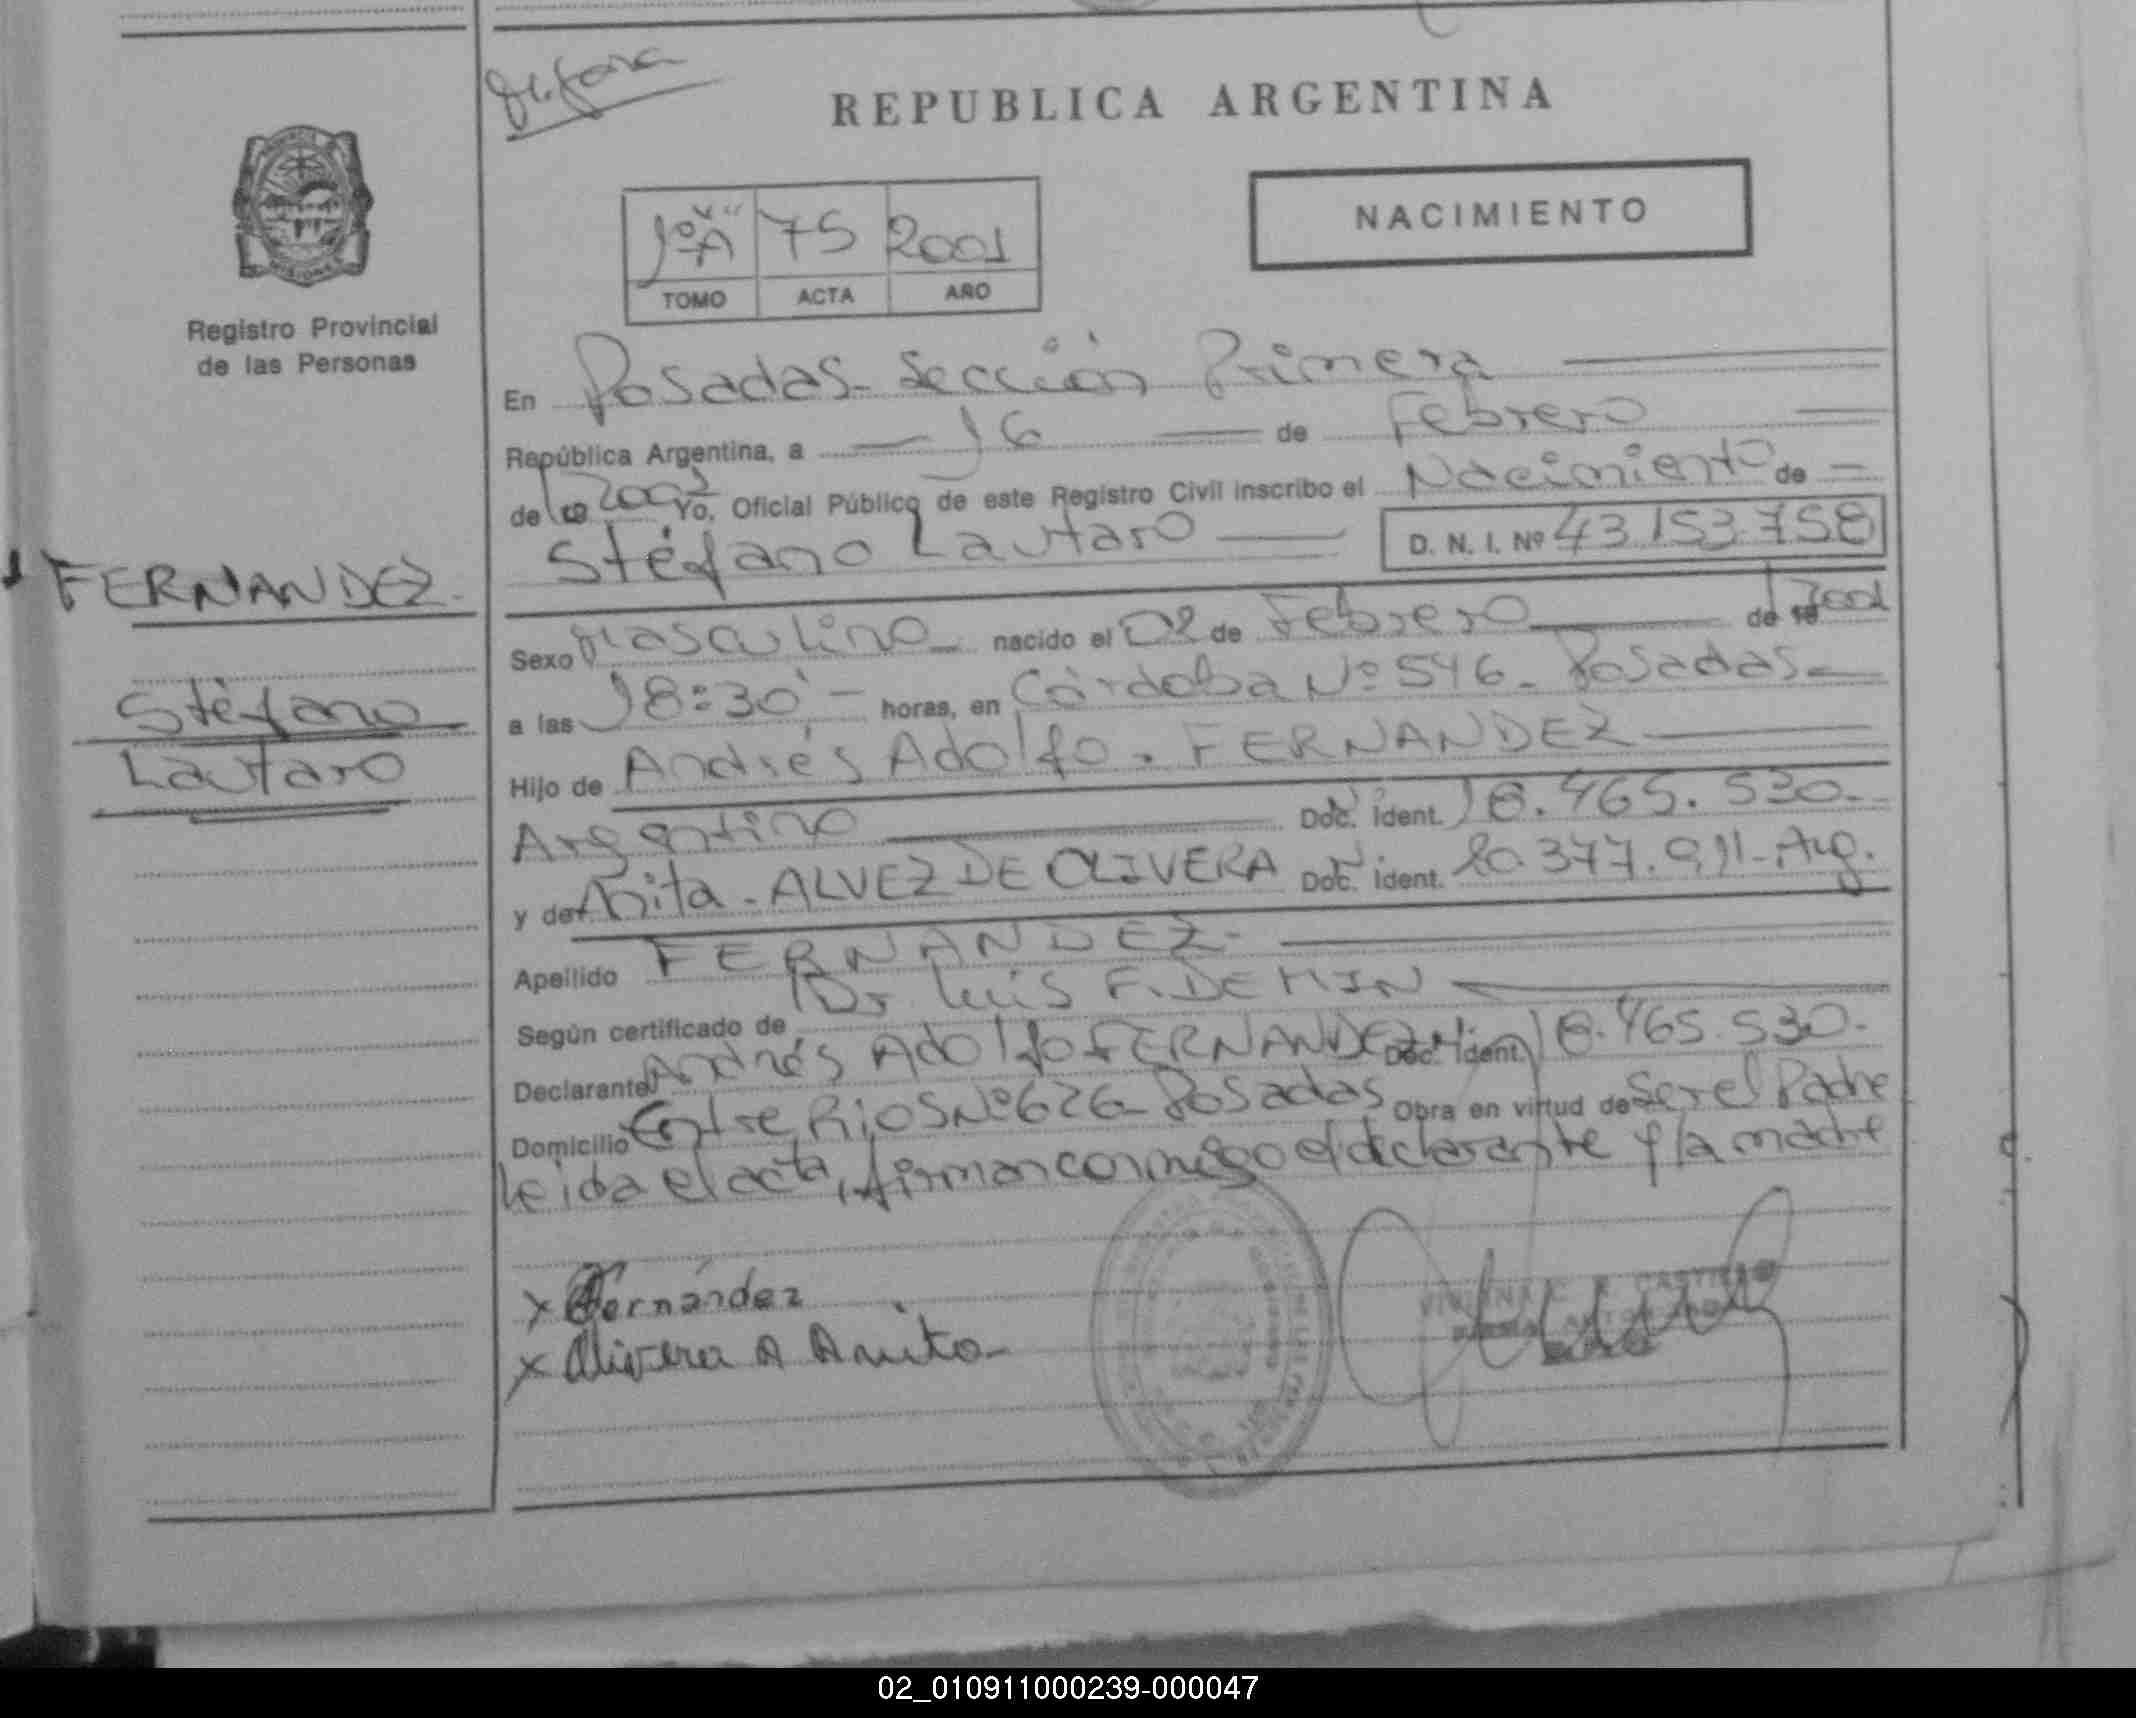 REPUBLICA ARGENTINA
NACIMIENTO
1º "A" 75 2001
TOMO ACTA AÑO
Registro Provincial
de las Personas
En Posadas - Sección Primera
República Argentina, a 16 de Febrero
de 2001 Yo, Oficial Público de este Registro Civil inscribo el Nacimiento de
Stéfano Lautaro D. N. I. Nº 43.153.758
FERNANDEZ.
Stéfano
Lautaro
Sexo Masculino nacido el 02 de Febrero de 2001
a las 18:30' horas, en Córdoba Nº 546 - Posadas -
Hijo de Andrés Adolfo. FERNANDEZ
Argentino Doc. Ident. 18.465.530.
y de Anita - ALVEZ DE OLIVERA Doc. Ident. 20.377.911 - Arg.
Apellido FERNANDEZ -
Según certificado de Dr Luis F. DEMIN
Declarante Andrés Adolfo FERNANDEZ Doc. Ident. 18.465.530.
Domicilio Entre Rios Nº 626 - Posadas Obra en virtud de Ser el Padre
Leida el acta, firman conmigo el declarante y la madre
x Fernández
x Olivera A Anita
02_010911000239-000047